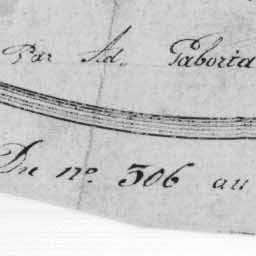 Par Ad. Taboria
Du nº 306 au